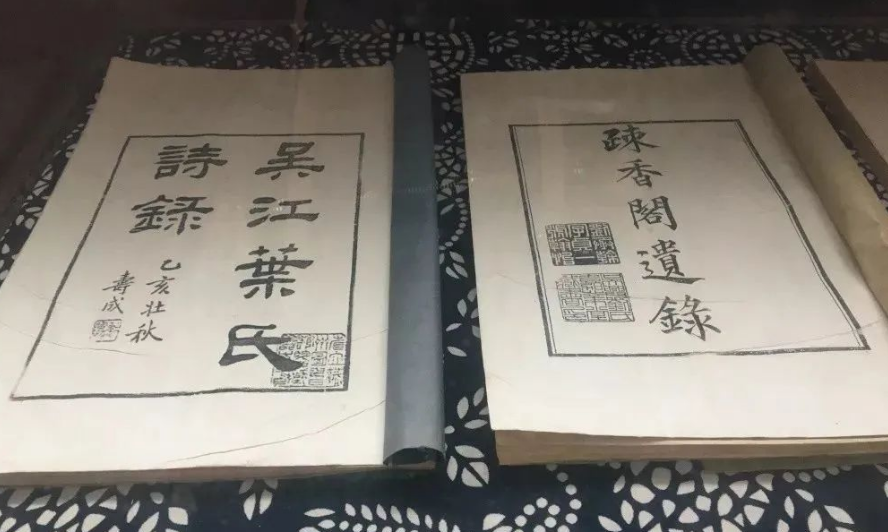 吴江葉氏
詩録
乙亥壮秋
壽成
疎香閣遺錄